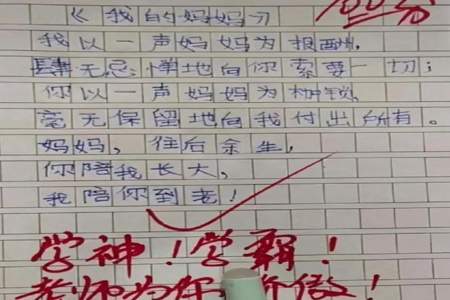 《我的妈妈》
100分
我以一声妈妈为报酬,
肆无忌惮地向你索要一切;
你以一声妈妈为枷锁,
毫无保留地向我付出所有。
妈妈,往后余生,
你陪我长大,
我陪你到老!
学神!学霸!
老师为你骄傲!